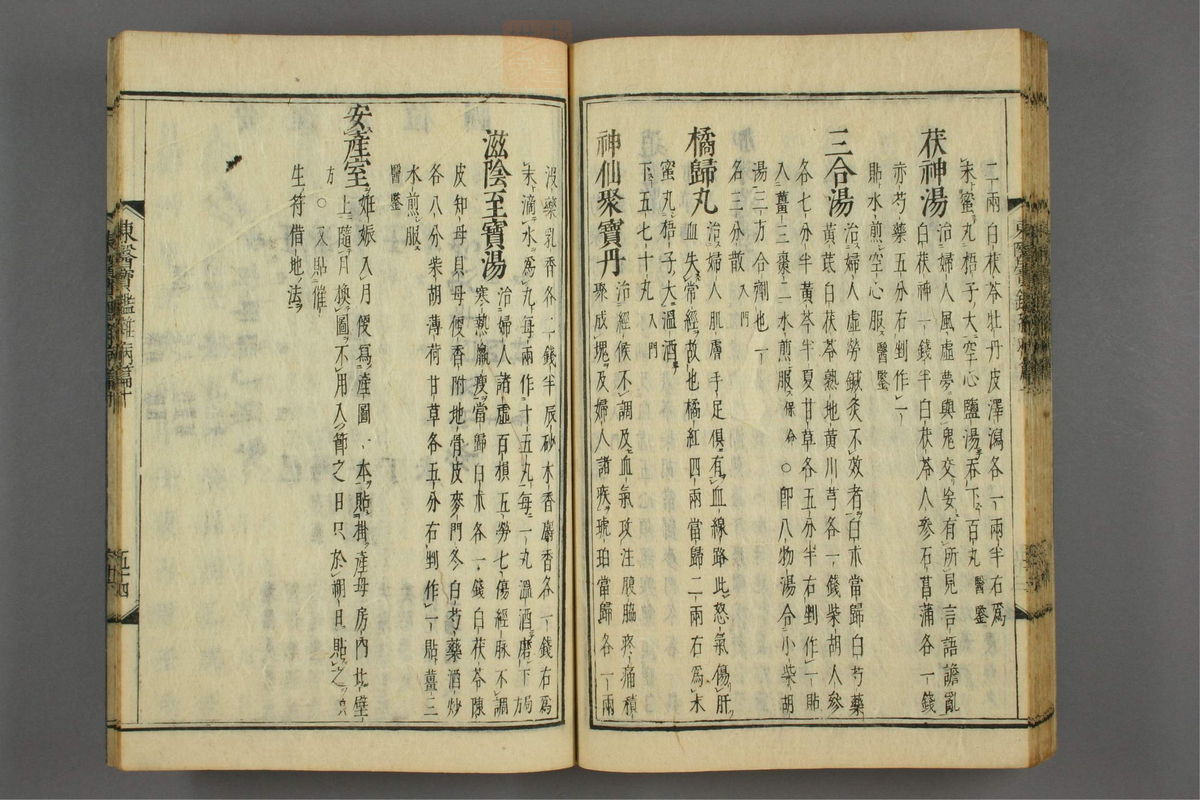 二兩白茯苓牡丹皮澤瀉各一兩半右爲
末蜜丸梧子大空心鹽湯吞下百丸醫鑒
茯神湯治婦人風虛夢與鬼交妄有所見言語譫亂
白茯神一錢半白茯苓人參石菖蒲各一錢
赤芍藥五分右剉作一
貼水煎空心服醫鑒
三合湯治婦人虛勞鍼灸不效者白朮當歸白芍藥
黃茋白茯苓熟地黃川芎各一錢柴胡人參
各七分半黃芩半夏甘草各五分半右剉作一貼
入薑三棗二水煎服保命○卽八物湯合小柴胡
湯三方合劑也一
名三分散入門
橘歸丸治婦人肌膚手足俱有血線路此怒氣傷肝
血失常經故也橘紅四兩當歸二兩右爲末
蜜丸梧子大溫酒
下五七十丸入門
神仙聚寶丹治經候不調及血氣攻注腹脇疼痛積
聚成塊及婦人諸疾琥珀當歸各一兩
沒藥乳香各二錢半辰砂木香麝香各一錢右爲
末滴水爲丸每兩作十五丸每一丸溫酒磨下局方
滋陰至寶湯治婦人諸虛百損五勞七傷經脉不調
寒熱羸瘦當歸白朮各一錢白茯苓陳
皮知母貝母便香附地骨皮麥門冬白芍藥酒炒
各八分柴胡薄荷甘草各五分右剉作一貼薑三
水煎服
醫鑒
安產室妊娠入月便寫產圖一本貼掛產母房內北壁
上隨月換圖不用入節之日只於朔旦貼之良
方○又貼催
生符借地法
東醫寶鑑雜病篇十
五十四